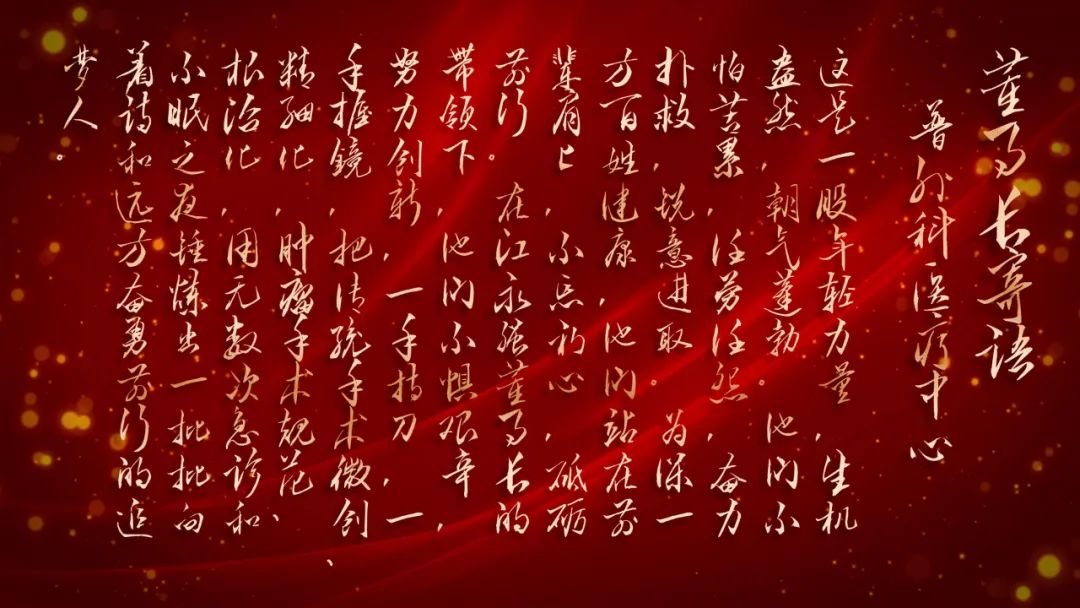 董事长寄语
普外科医疗中心
这是一股年轻力量，生机
盎然，朝气蓬勃。他们不
怕苦累，任劳任怨，奋力
扑救，锐意进取。为保一
方百姓健康，他们站在前
辈肩上，不忘初心，砥砺
前行。在江永强董事长的
带领下，他们不惧艰辛，
努力创新，一手持刀，一
手握镜，把传统手术微创、
精细化，肿瘤手术规范、
根治化，用无数次急诊和
不眠之夜，锤炼出一批批向
着诗和远方奋勇前行的追
梦人。